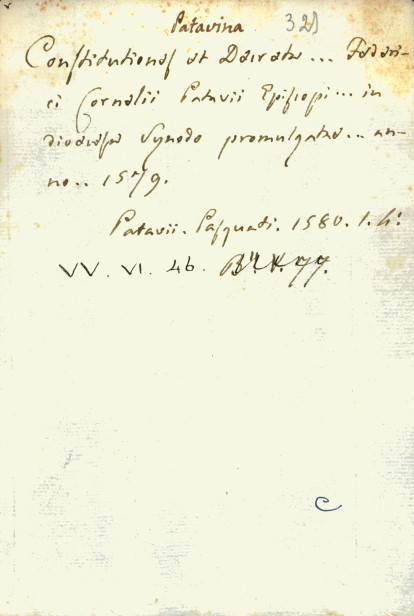 Patavina 329
Constitutiones et Decreta... Federi-
ci Cornelii Patavii Episcopi... in
diocesa Synodo promulgata... an-
no.. 1579.
Patavii. Pasquati. 1580. 1. 4º
VV. VI. 46.
C